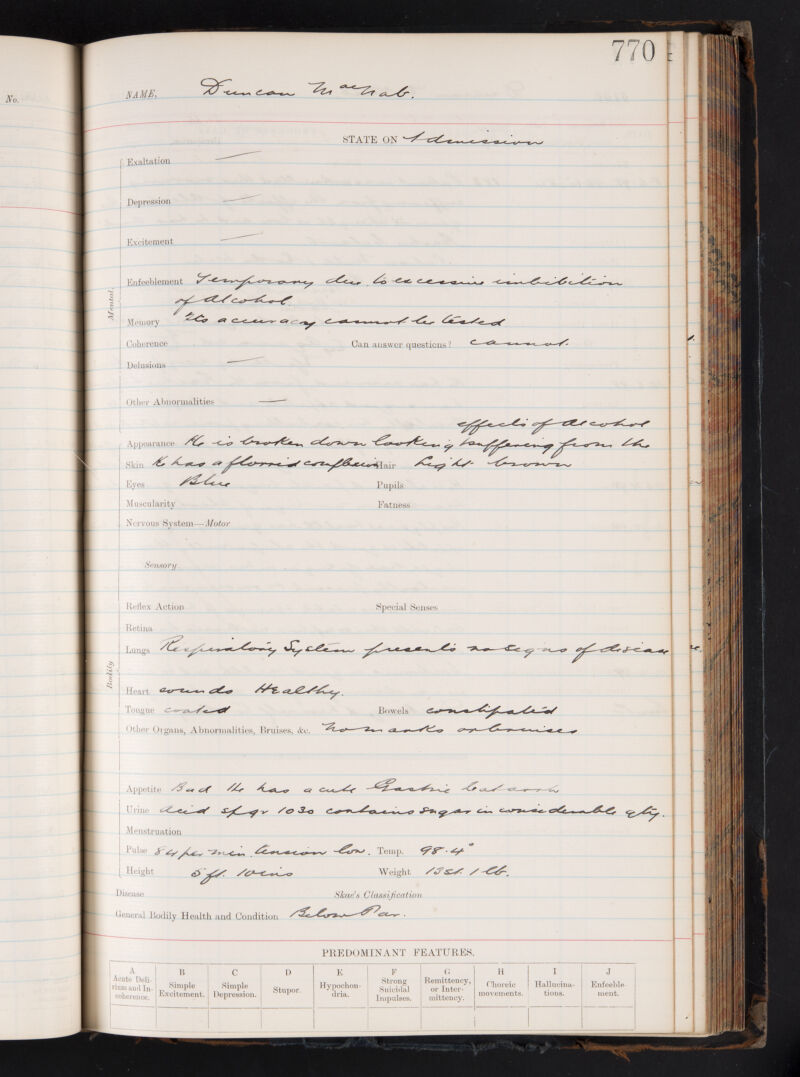 770
No.
NAME, Duncan MacNab.
STATE ON Admission
Exaltation —
Depression —
Excitement —
Mental.
Enfeeblement Temporary due to excessive imbibition
of alcohol
Memory Its accuracy cannot be tested
Coherence Can answer questions? cannot.
Delusions —
Other Abnormalities —
effects of alcohol
Appearance He is broken down looking & suffering from the
Skin He has a florid complexion Hair Light brown
Eyes Blue Pupils
Muscularity Fatness
Nervous System—Motor
Sensory
Reflex Action Special Senses
Retina
Bodily
Lungs Respiratory System presents no signs of disease
Heart sounds Healthy.
Tongue coated Bowels constipated
Other Organs, Abnormalities, Bruises, &c. No marks or bruises
Appetite Bad He has acute Gastric Catarrh
Urine acid sp.gr 1030 contains sugar in considerable qty.
Menstruation
Pulse 84 per min. tension low. Temp. 98.4°
Height 5 ft. 10 ins Weight 13 st. 1 lb.
Disease Skae's Classification
General Bodily Health and Condition Below Par.
PREDOMINANT FEATURES.
A B C D E F G H I J
Acute Delirium and Incoherence. Simple Excitement. Simple Depression. Stupor. Hypochondria. Strong Suicidal Impulses. Remittency, or Intermittency. Choreic movements. Hallucinations. Enfeeblement.